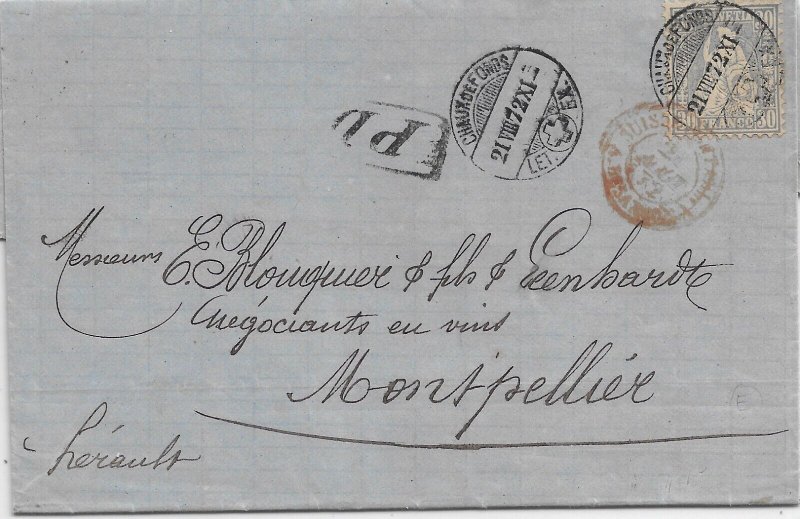 CHAUX-DE-FONDS
21 VIII 72 XI
LET. EX.
CHAUX-DE-FONDS
21 VIII 72 XI
30 30
PD
SUISSE
Messieurs E. Blouquier & fils & Leenhardt
Négociants en vins
Montpellier
hérault
E